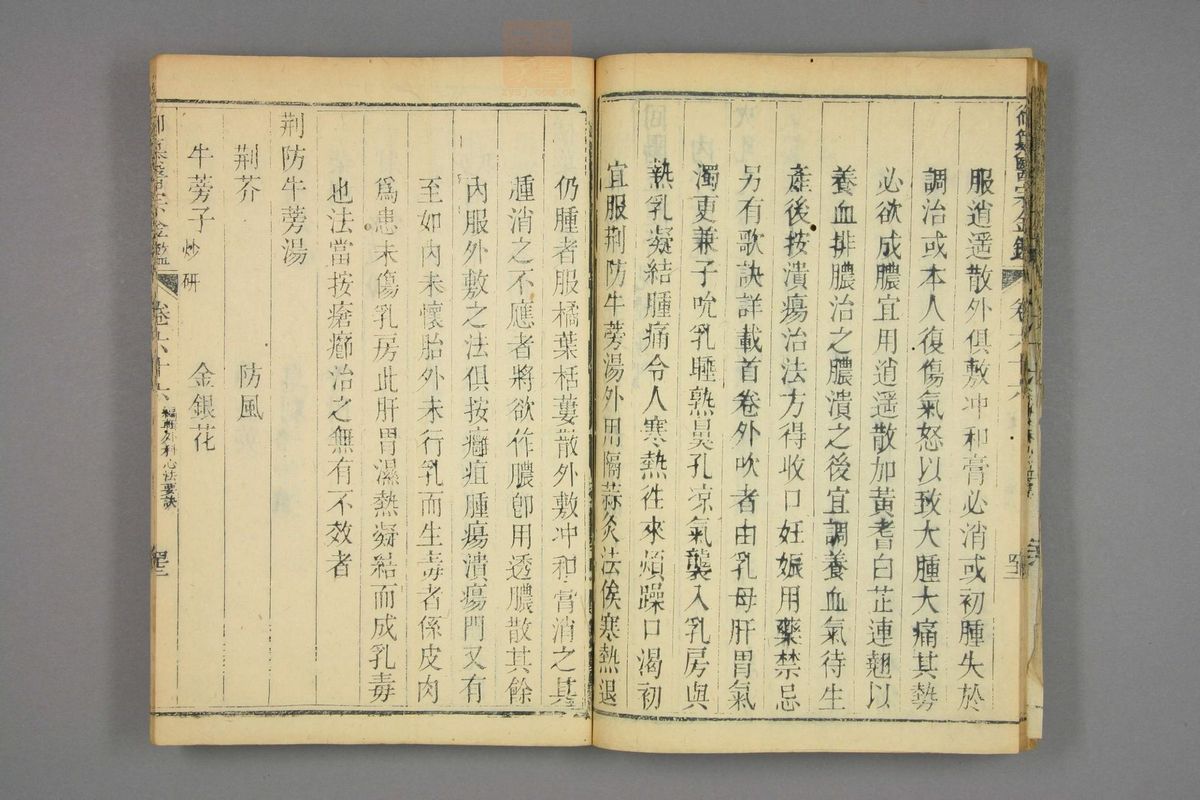 服逍遥散外俱敷冲和膏必消或初腫失於
調治或本人復傷氣怒以致大腫大痛其勢
必欲成膿宜用逍遥散加黃耆白芷連翹以
養血排膿治之膿潰之後宜調養血氣待生
產後按潰瘍治法方得收口妊娠用藥禁忌
另有歌訣詳載首卷外吹者由乳母肝胃氣
濁更兼子吮乳睡熟鼻孔凉氣襲入乳房與
熱乳凝結腫痛令人寒熱徃來煩躁口渴初
宜服荆防牛蒡湯外用隔蒜灸法俟寒熱退
仍腫者服橘葉栝蔞散外敷冲和膏消之其
腫消之不應者將欲作膿卽用透膿散其餘
內服外敷之法俱按癰疽腫瘍潰瘍門又有
至如內未懷胎外未行乳而生毒者係皮肉
爲患未傷乳房此肝胃濕熱凝結而成乳毒
也法當按瘡癤治之無有不效者
荆防牛蒡湯
荆芥 防風
牛蒡子炒研 金銀花
御纂醫宗金鑑 卷六十六 編輯外科心法要訣